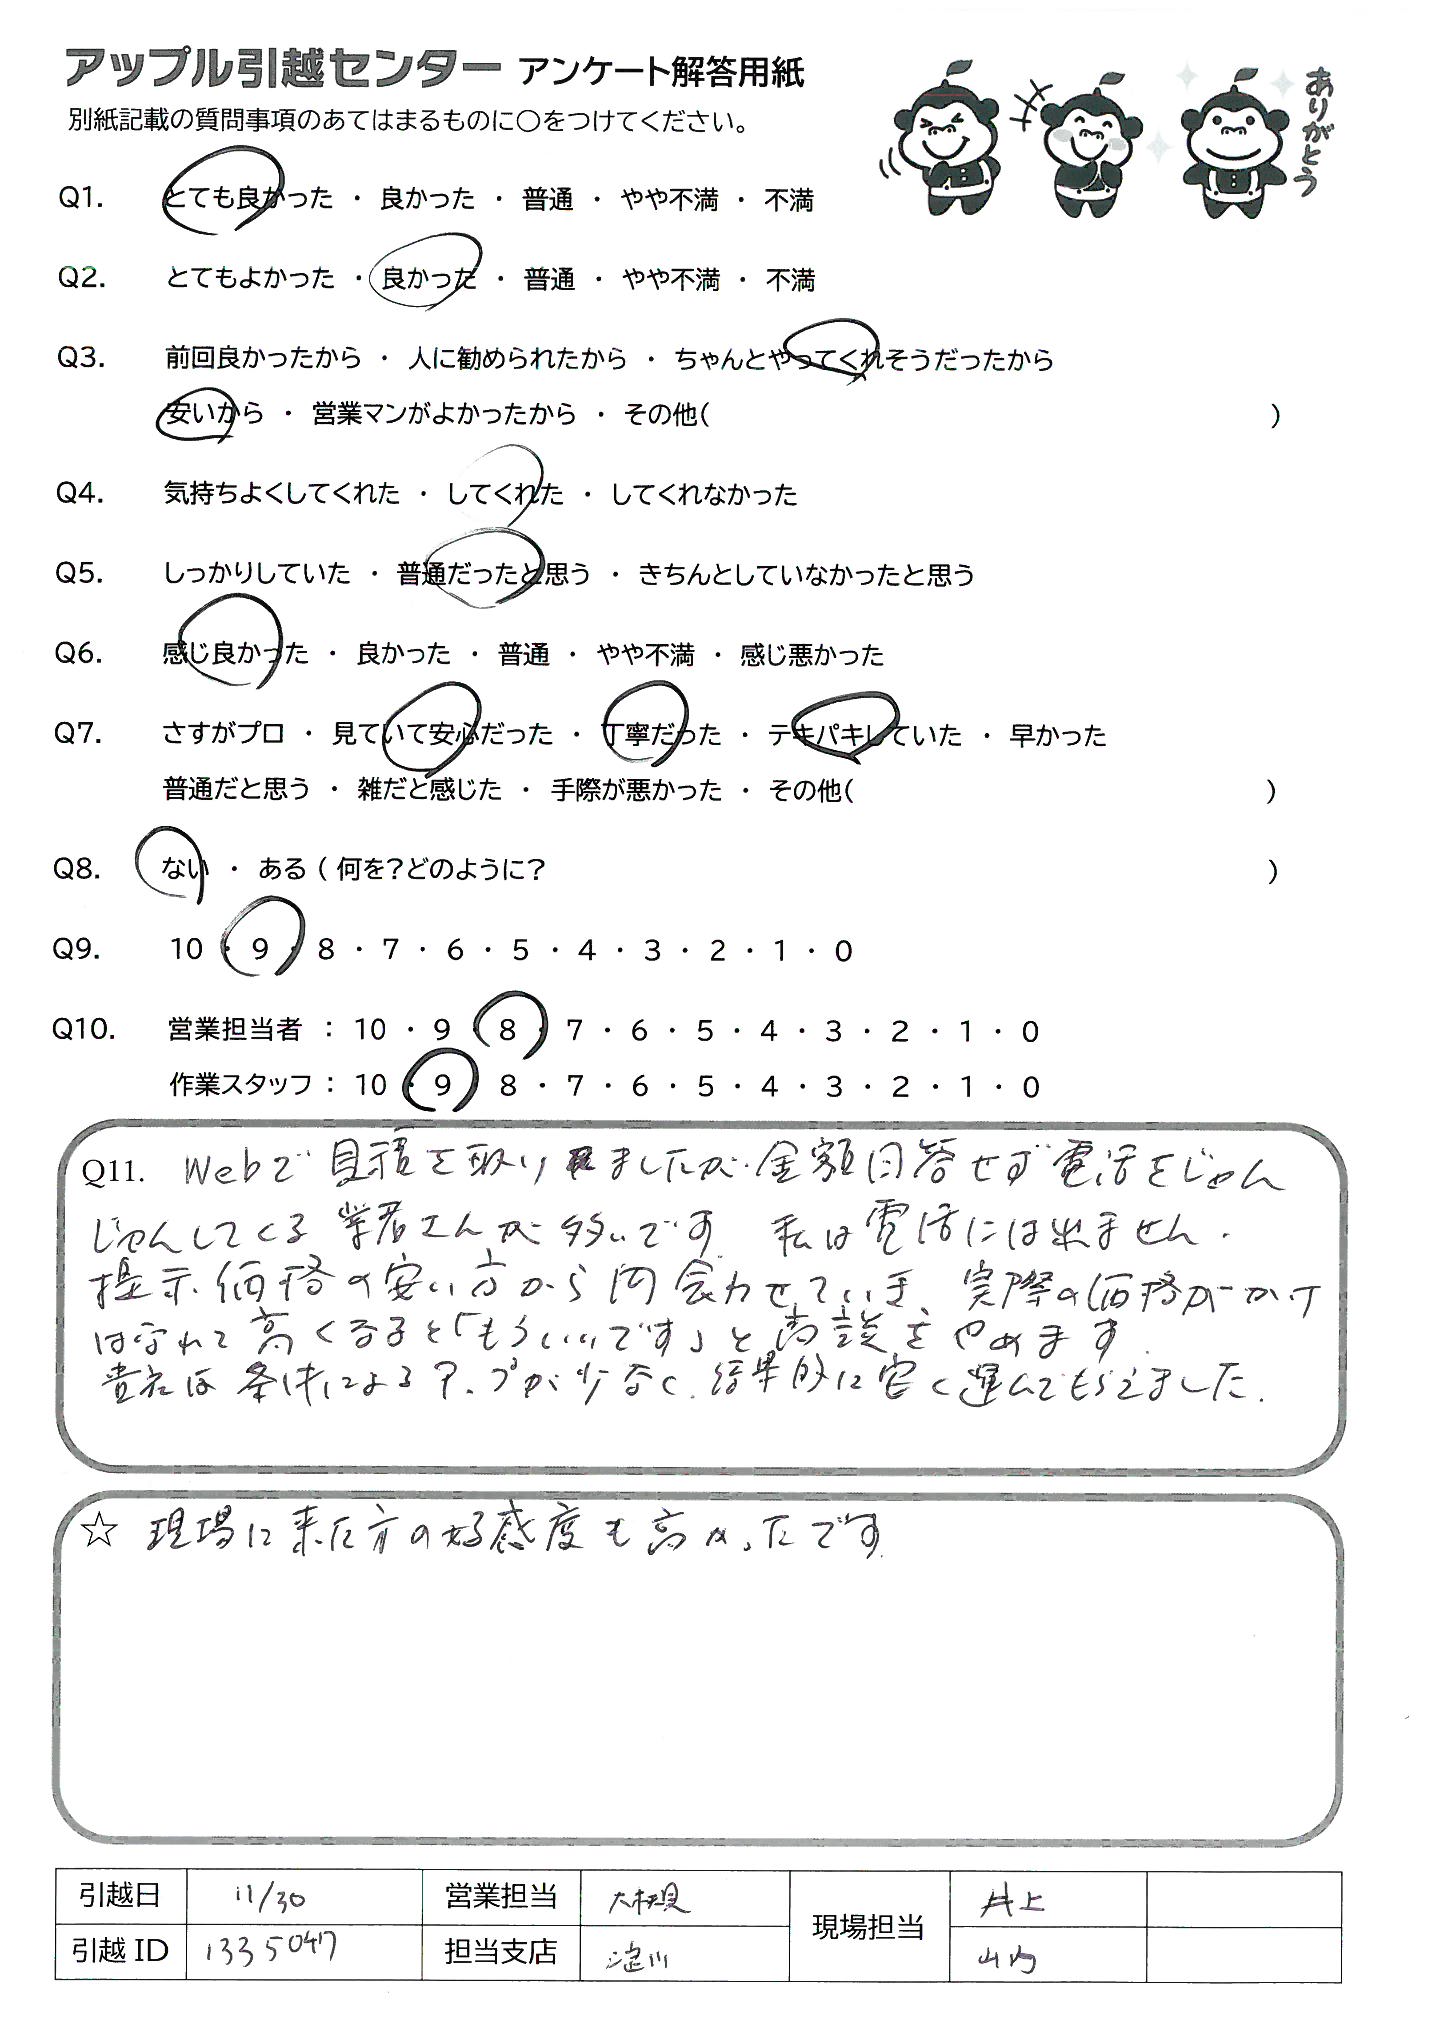 アップル引越センター アンケート解答用紙
別紙記載の質問事項のあてはまるものに○をつけてください。
ありがとう
Q1. とても良かった ・ 良かった ・ 普通 ・ やや不満 ・ 不満
Q2. とてもよかった ・ 良かった ・ 普通 ・ やや不満 ・ 不満
Q3. 前回良かったから ・ 人に勧められたから ・ ちゃんとやってくれそうだったから
安いから ・ 営業マンがよかったから ・ その他( )
Q4. 気持ちよくしてくれた ・ してくれた ・ してくれなかった
Q5. しっかりしていた ・ 普通だったと思う ・ きちんとしていなかったと思う
Q6. 感じ良かった ・ 良かった ・ 普通 ・ やや不満 ・ 感じ悪かった
Q7. さすがプロ ・ 見ていて安心だった ・ 丁寧だった ・ テキパキしていた ・ 早かった
普通だと思う ・ 雑だと感じた ・ 手際が悪かった ・ その他( )
Q8. ない ・ ある ( 何を?どのように? )
Q9. 10 ・ 9 ・ 8 ・ 7 ・ 6 ・ 5 ・ 4 ・ 3 ・ 2 ・ 1 ・ 0
Q10. 営業担当者 : 10 ・ 9 ・ 8 ・ 7 ・ 6 ・ 5 ・ 4 ・ 3 ・ 2 ・ 1 ・ 0
作業スタッフ : 10 ・ 9 ・ 8 ・ 7 ・ 6 ・ 5 ・ 4 ・ 3 ・ 2 ・ 1 ・ 0
Q11. Webで見積を取りましたが、金額回答せず電話をじゃん
じゃんしてくる業者さんが多いです 私は電話には出ません.
提示価格の安い方から問合わせていき、実際の価格がかけ
はなれて高くなると「もういいです」と商談をやめます.
貴社は条件によるアップが少なく、結果的に安く運んでもらえました.
☆ 現場に来た方の好感度も高かったです
引越日 11/30 営業担当 現場担当 井上
引越 ID 1335047 担当支店 淀川 山内